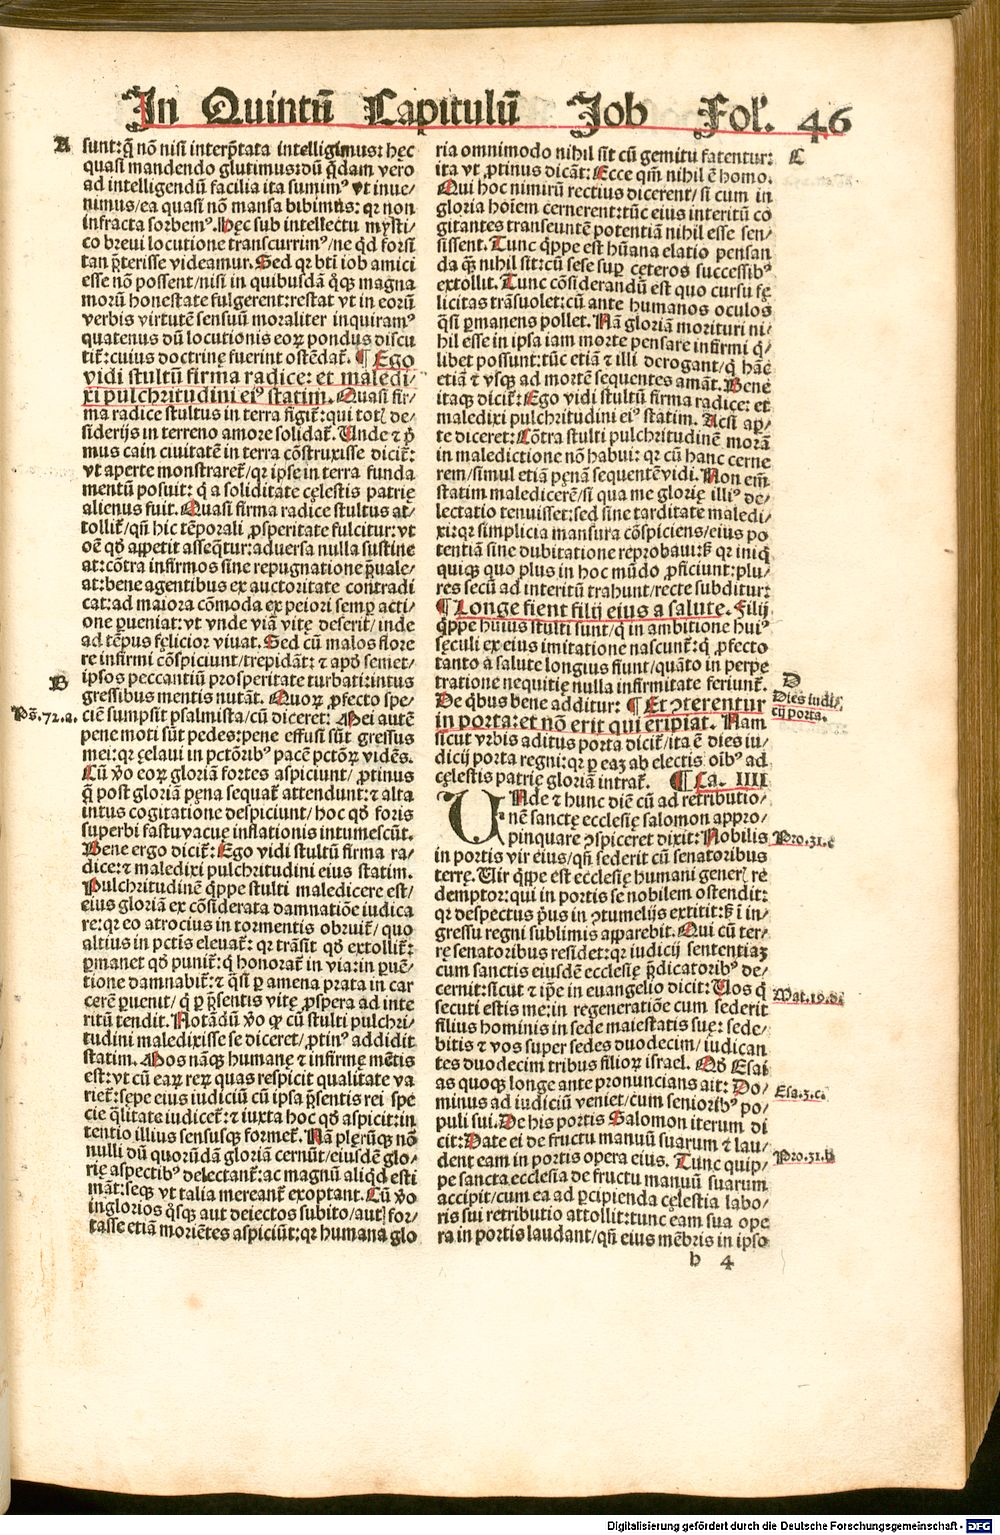 In Quintū Capitulū Job Fol. 46
A
sunt: q̄ nō nisi interp̄tata intelligimus: hęc
quasi mandendo glutimus: dū q̄dam vero
ad intelligendū facilia ita sumimꝰ vt inue/
nimus/ ea quasi nō mansa bibimus: qr non
infracta sorbemꝰ. Hęc sub intellectu mysti/
co breui locutione transcurrimꝰ/ ne qd forsi
tan p̄terisse videamur. Sed qr bti iob amici
esse nō possent/ nisi in quibusdā qͦꝫ magna
morū honestate fulgerent: restat vt in eorū
verbis virtutē sensuū moraliter inquiramꝰ
quatenus dū locutionis eoꝝ pondus discu
tit̄: cuius doctrinę fuerint ostēdat̄. ¶ Ego
vidi stultū firma radice: et maledi/
xi pulchritudini eiꝰ statim. Quasi fir/
ma radice stultus in terra figit̄: qui totꝭ de/
siderijs in terreno amore solidat̄. Unde ⁊ p̄
mus cain ciuitatē in terra cōstruxisse dicit̄:
vt aperte monstraret̄/ qr ipse in terra funda
mentū posuit: q̇ a soliditate cęlestis patrię
alienus fuit. Quasi firma radice stultus at/
tollit̄/ qn̄ hic tēporali ꝓsperitate fulcitur: vt
oē qd̄ appetit asseq̄tur: aduersa nulla sustine
at: cōtra infirmos sine repugnatione p̄uale/
at: bene agentibus ex auctoritate contradi
cat: ad maiora cōmoda ex peiori semꝑ acti/
one ꝑueniat: vt vnde viā vitę deserit/ inde
ad tēpus fęlicior viuat. Sed cū malos flore
re infirmi cōspiciunt/ trepidāt: ⁊ apd̄ semet/
B
ipsos peccantiū prosperitate turbati: intus
gressibus mentis nutāt. Quoꝝ ꝓfecto spe/
Ps̄. 72. a.
ciē sumpsit psalmista/ cū diceret: Mei autē
pene moti sūt pedes: pene effusi sūt gressus
mei: qr zelaui in pctōribꝰ pacē pctōꝝ vidēs.
Cū v̄o eoꝝ gloriā fortes aspiciunt/ ꝓtinus
q̄ post gloriā pęna sequat̄ attendunt: ⁊ alta
intus cogitatione despiciunt/ hoc qd̄ foris
superbi fastu vacuę inflationis intumescūt.
Bene ergo dicit̄: Ego vidi stultū firma ra/
dice: ⁊ maledixi pulchritudini eius statim.
Pulchritudinē q̄ppe stulti maledicere est/
eius gloriā ex cōsiderata damnatiōe iudica
re: qr eo atrocius in tormentis obruit̄/ quo
altius in pctis eleuat̄: qr trāsit qd̄ extollit̄:
ꝑmanet qd̄ punit̄: q̇ honorat̄ in via: in ꝑuē/
tione damnabit̄: ⁊ q̄si ꝑ amena prata in car
cerē ꝑuenit/ q̇ ꝑ p̄sentis vitę ꝓspera ad inte
ritū tendit. Notādū v̄o ꝙ cū stulti pulchri/
tudini maledixisse se diceret/ ꝓtinꝰ addidit
statim. Mos nāqꝫ humanę ⁊ infirmę mētis
est: vt cū eaꝝ reꝝ quas respicit qualitate va
riet̄: sępe eius iudiciū cū ipsa p̄sentis rei spe
cie q̄litate iudicet̄: ⁊ iuxta hoc qd̄ aspicit: in
tentio illius sensusqꝫ formet̄. Nā plęrūqꝫ nō
nulli dū quorūdā gloriā cernūt/ eiusdē glo/
rię aspectibꝰ delectant̄: ac magnū aliqd esti
māt: seqꝫ vt talia mereant̄ exoptant. Cū v̄o
inglorios qͦsqꝫ aut deiectos subito/ aut for/
tasse etiā moriētes aspiciūt: qr humana glo
ria omnimodo nihil sit cū gemitu fatentur:
C
ita vt ꝓtinus dicāt: Ecce qm̄ nihil ē homo.
Qui hoc nimirū rectius dicerent/ si cum in
gloria hoīem cernerent: tūc eius interitū co
gitantes transeuntē potentiā nihil esse sen/
sissent. Tunc q̄ppe est hūana elatio pensan
da qꝫ nihil sit: cū sese suꝑ cęteros successibꝰ
extollit. Tunc cōsiderandū est quo cursu fę
licitas trāsuolet: cū ante humanos oculos
q̄si ꝑmanens pollet. Nā gloriā morituri ni/
hil esse in ipsa iam morte pensare infirmi q̇/
libet possunt: tūc etiā ⁊ illi derogant/ q̇ hāc
etiā ⁊ vsqꝫ ad mortē sequentes amāt. Bene
itaqꝫ dicit̄: Ego vidi stultū firma radice: et
maledixi pulchritudini eiꝰ statim. Acsi aꝑ/
te diceret: Cōtra stulti pulchritudinē morā
in maledictione nō habui: qr cū hanc cerne
rem/ simul etiā pęnā sequentē vidi. Non em̄
statim maledicerē/ si qua me glorię illiꝰ de/
lectatio tenuisset: sed sine tarditate maledi/
xi: qr simplicia mansura cōspiciens/ eius po
tentiā sine dubitatione reprobaui: ꝫ qr iniq̇
quiqꝫ quo plus in hoc mūdo ꝓficiunt: plu/
res secū ad interitū trahunt/ recte subditur:
¶ Longe fient filij eius a salute. Filij
q̄ppe huius stulti sunt/ q̇ in ambitione huiꝰ
sęculi ex eius imitatione nascunt̄: q̇ ꝓfecto
tanto a salute longius fiunt/ quāto in perpe
tratione nequitię nulla infirmitate feriunt̄.
D
De q̄bus bene additur: ¶ Et ꝯterentur
Dies iudi/
cij porta.
in porta: et nō erit qui eripiat. Nam
sicut vrbis aditus porta dicit̄/ ita ē dies iu/
dicij porta regni: qr ꝑ eaꝫ ab electis oībꝰ ad
cęlestis patrię gloriā intrat̄. ¶ Ca. IIII
UNde ⁊ hunc diē cū ad retributio/
nē sanctę ecclesię salomon appro/
pinquare ꝯspiceret dixit: Nobilis
Pro. 31. c
in portis vir eius/ qn̄ sederit cū senatoribus
terrę. Uir q̄ppe est ecclesię humani generꝭ re
demptor: qui in portis se nobilem ostendit:
qr despectus p̄us in ꝯtumelijs extitit: ꝫ ī in/
gressu regni sublimis apparebit. Qui cū ter/
rę senatoribus residet: qr iudicij sententiaꝫ
cum sanctis eiusdē ecclesię p̄dicatoribꝰ de/
cernit: sicut ⁊ ip̄e in euangelio dicit: Uos q̇
Mat. 19. d
secuti estis me: in regeneratiōe cum sederit
filius hominis in sede maiestatis suę: sede/
bitis ⁊ vos super sedes duodecim/ iudican
tes duodecim tribus filioꝝ israel. Qd̄ Esai
as quoqꝫ longe ante pronuncians ait: Do/
Esa. 3. c.
minus ad iudiciū veniet/ cum senioribꝰ po/
puli sui. De his portis Salomon iterum di
cit: Date ei de fructu manuū suarum ⁊ lau/
dent eam in portis opera eius. Tunc quip/
Pro. 31. b
pe sancta ecclesia de fructu manuū suarum
accipit/ cum ea ad ꝑcipienda cęlestia labo/
ris sui retributio attollit: tunc eam sua ope
ra in portis laudant/ qn̄ eius mēbris in ipso
h 4
Digitalisierung gefördert durch die Deutsche Forschungsgemeinschaft - DFG